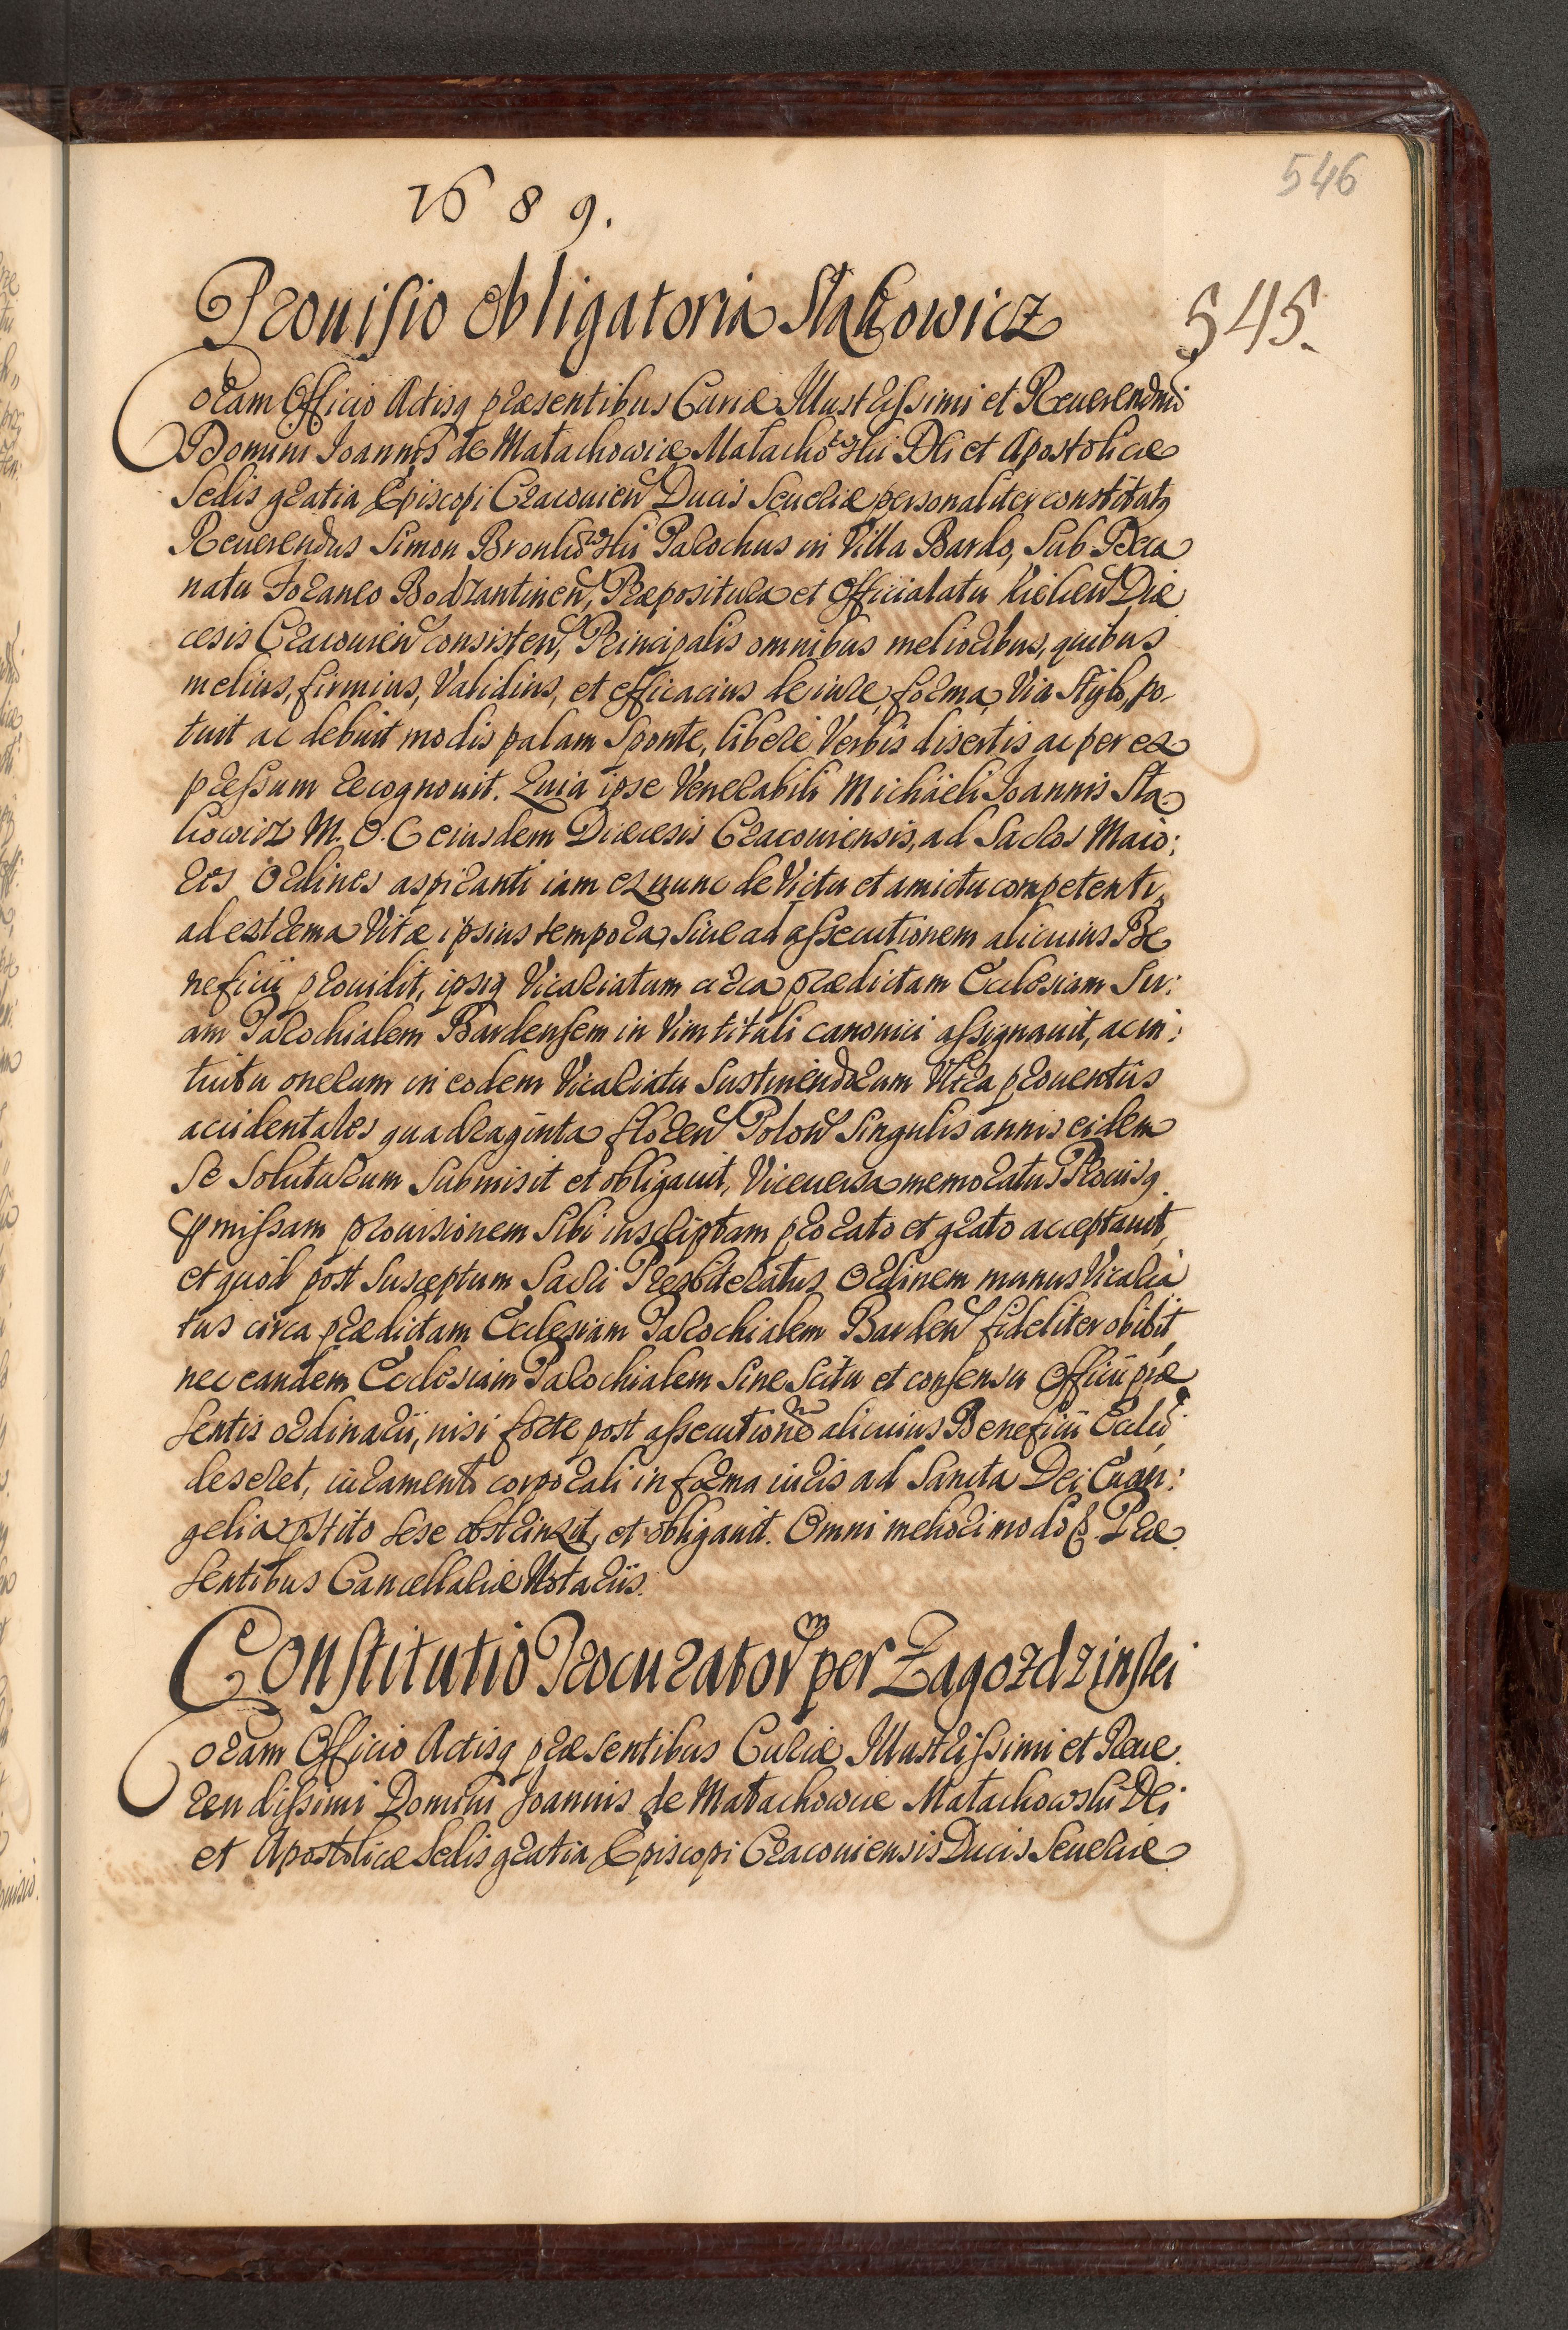 546
1689.
Provisio Obligatoria Stakowicz
545.
Coram Officio Actisq præsentibus Curiæ Illustrissimi et Reuerendmi
Domini Joannis de Małachowice Małachowski Dei et Apostolicæ
Sedis gratia Episcopi Cracouien Ducis Seueriæ personaliter constitutq
Reuerendus Simon Parochus in Villa Bardo, Sub Deca
natu foraneo Bodzantinen, Præpositura et Officialatu Kielcen Diæ
cesis Cracouien consisten, Principalis omnibus melioribus, quibus
melius, firmius, Validius, et efficacius de iure, forma, Via Stylo, po-
tuit ac debuit modis palam Sponte, libere Verbis disertis ac per ex
pressum recognouit. Quia ipse Venerabili Michaeli Joannis Sta
kowicz M. O. C eiusdem Diæcesis Cracouiensis, ad Sacros Maio:
res Ordines aspiranti iam ex nunc de Victu et amictu competenti,
ad extrema Vitæ ipsius tempora, Siue ad assecutionem alicuius Be
neficii prouidit, ipsiq Vicariatum circa prædictam Ecclesiam Su:
am Parochialem Bardensem in Vim tituli canonici assignauit, ac in:
tuitu onerum in eodem Vicariatu Sustinendorum Vltra prouentus
accidentales quadraginta floren Polon Singulis annis eidem
Se Soluturum Submisit et obligauit, Viceuersa memoratus Prouisq
præmissam prouisionem Sibi inscriptam pro rato et grato acceptauit,
et quod post Susceptum Sacri Presbyteratus Ordinem munus Vicaria
tus circa prædictam Ecclesiam Parochialem Barden fideliter obibit,
nec eandem Ecclesiam Parochialem Sine Scitu et consensu Officii præ
sentis ordinarii, nisi forte post assecutione alicuius Beneficii
deseret, iuramento corporali in forma iuris ad Sancta Dei Euan:
gelia pstito sese obstrinxit, et obligauit. Omni meliori modo &. Præ
sentibus Cancellariæ Notariis.
Constitutio Procuratorm per Zagozdzinski
Coram Officio Actisq præsentibus Curiæ Illustrissimi et Reue
rendissimi Domini Joannis de Małachowice Małachowski Dei
et Apostolicæ Sedis gratia Episcopi Cracouiensis Ducis Seueriæ